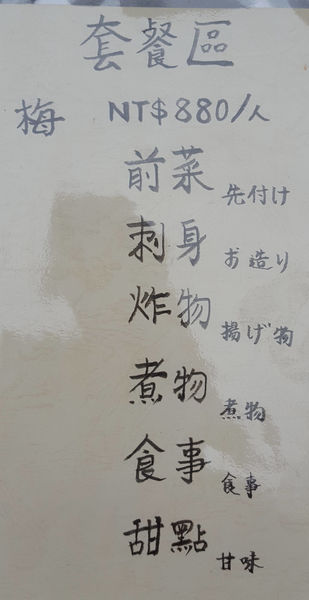 套餐區
梅 NT$880/人
前菜 先付け
刺身 お造り
炸物 揚げ物
煮物 煮物
食事 食事
甜點 甘味